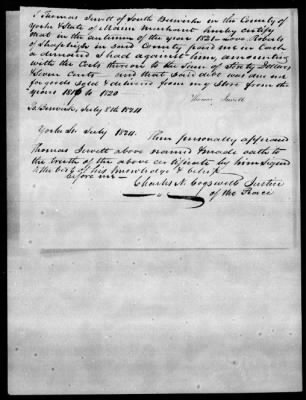 I Thomas Jewett of South Berwick in the County of
York & State of Maine Merchant hereby certify
that in the autumn of the year 1820 Love Roberts
of Shapleigh in said County paid me in Cash
a demand I had against him, amounting
with the Costs thereon to the Sum of sixty Dollars
& Seven Cents and that said debt was due me
for goods sold & delivered from my Store from the
years 1816 to 1820
Thomas Jewett
So Berwick, July 8th 1824
York ss. July 1824. Then personally appeared
Thomas Jewett above named & made oath to
the truth of the above certificate by him signed
to the best of his knowledge & belief
before me
Charles N. Cogswell Justice
of the Peace